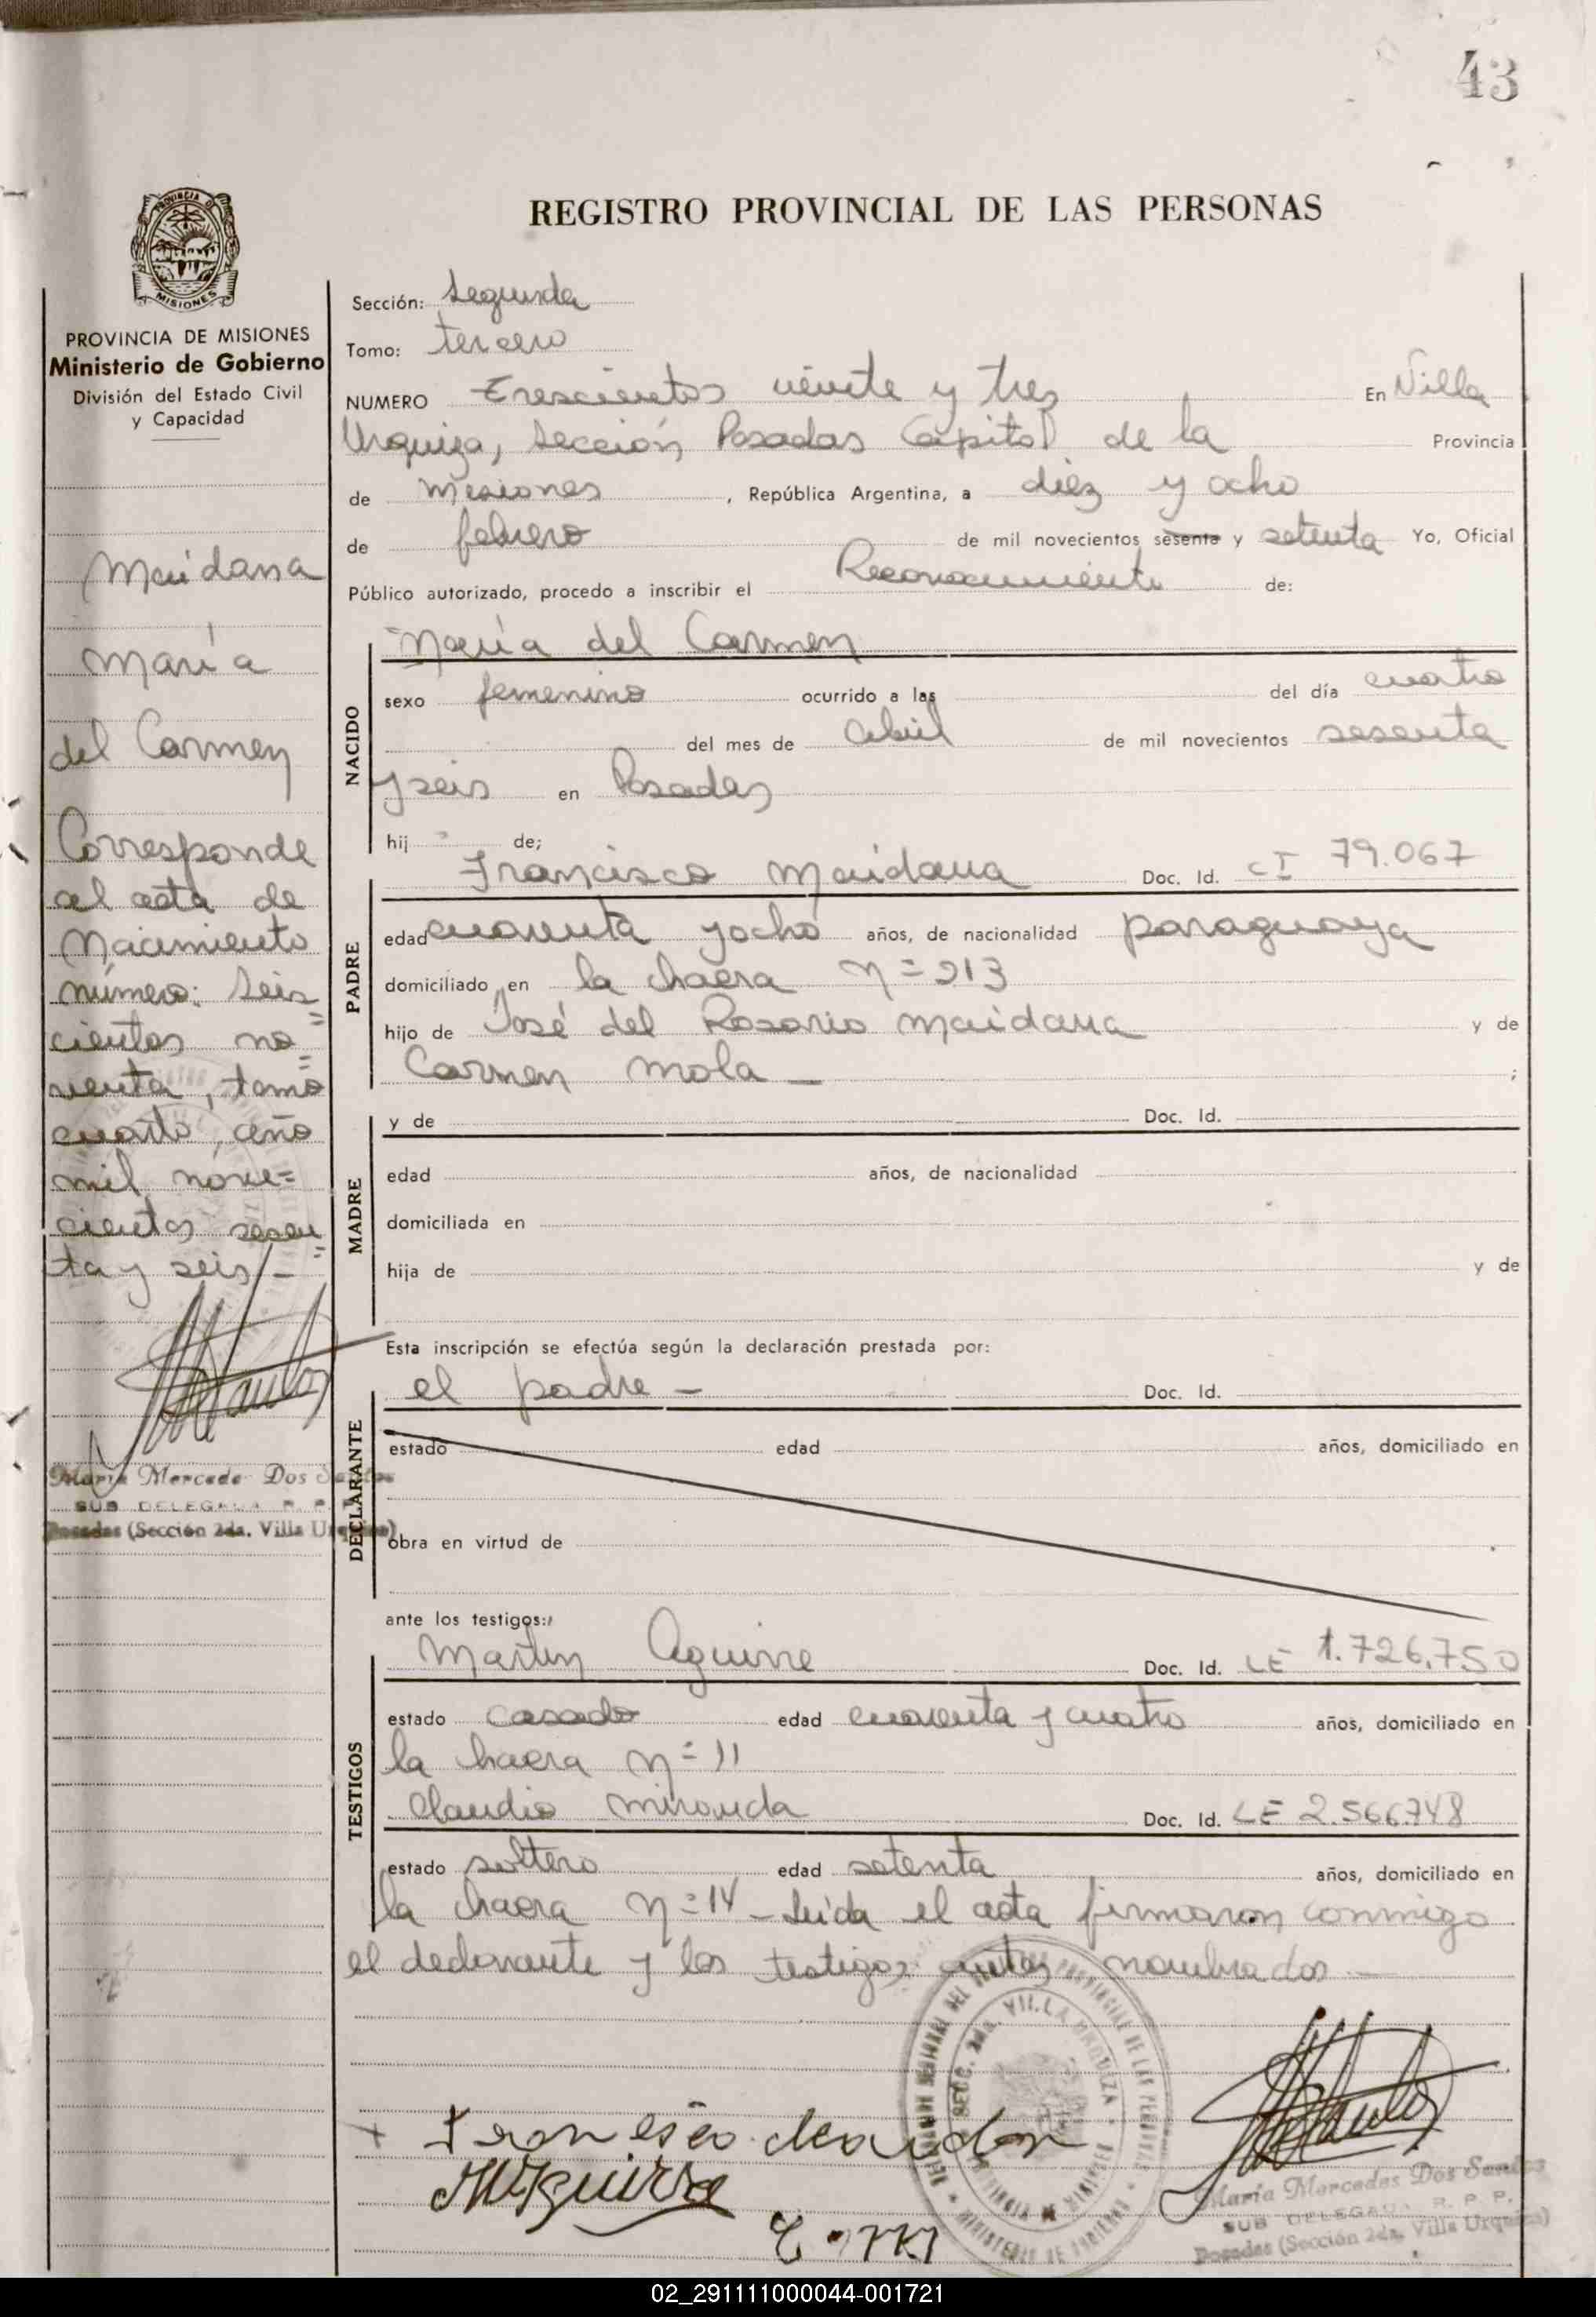 43
REGISTRO PROVINCIAL DE LAS PERSONAS
PROVINCIA DE MISIONES
Ministerio de Gobierno
División del Estado Civil
y Capacidad
Maidana
María
del Carmen
Corresponde
al acta de
Nacimiento
número: Seis
cientos no=
venta, tomo
cuarto, año
mil nove=
cientos sesen=
ta y seis/-
María Mercede Dos Santos
SUB DELEGADA R. P. P.
Posadas (Sección 2da. Villa Urquiza)
Sección: Segunda
Tomo: tercero
NUMERO Trescientos veinte y tres En Villa
Urquiza, Sección Posadas Capital de la Provincia
de Misiones, República Argentina, a diez y ocho
de febrero de mil novecientos sesenta y setenta Yo, Oficial
Público autorizado, procedo a inscribir el Reconocimiento de:
NACIDO
María del Carmen
sexo femenino ocurrido a las del día cuatro
del mes de Abril de mil novecientos sesenta
y seis en Posadas
hij de;
PADRE
Francisco Maidana Doc. Id. CI 79.067
edad cuarenta y ocho años, de nacionalidad paraguaya
domiciliado en la chacra N= 213
hijo de José del Rosario Maidana y de
Carmen Mola —;
MADRE
y de Doc. Id.
edad años, de nacionalidad
domiciliada en
hija de y de
Esta inscripción se efectúa según la declaración prestada por:
DECLARANTE
el padre - Doc. Id.
estado edad años, domiciliado en
obra en virtud de
ante los testigos:
TESTIGOS
Martín Aguirre Doc. Id. LE 1.726.750
estado casado edad cuarenta y cuatro años, domiciliado en
la chacra N= 11
Claudio Miranda Doc. Id. LE 2.566.748
estado soltero edad setenta años, domiciliado en
la chacra N=14 - Leída el acta firmaron conmigo
el declarante y los testigos antes nombrados —
SECC. 2da. VILLA URQUIZA
MINISTERIO DE GOBIERNO
María Mercedes Dos Santos
SUB DELEGADA R. P. P.
Posadas (Sección 2da. Villa Urquiza)
02_291111000044-001721